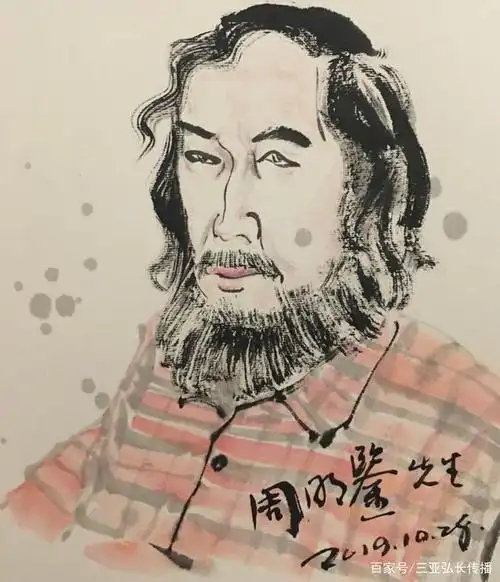 周明鉴先生
2019.10.25.
百家号/三亚弘长传播